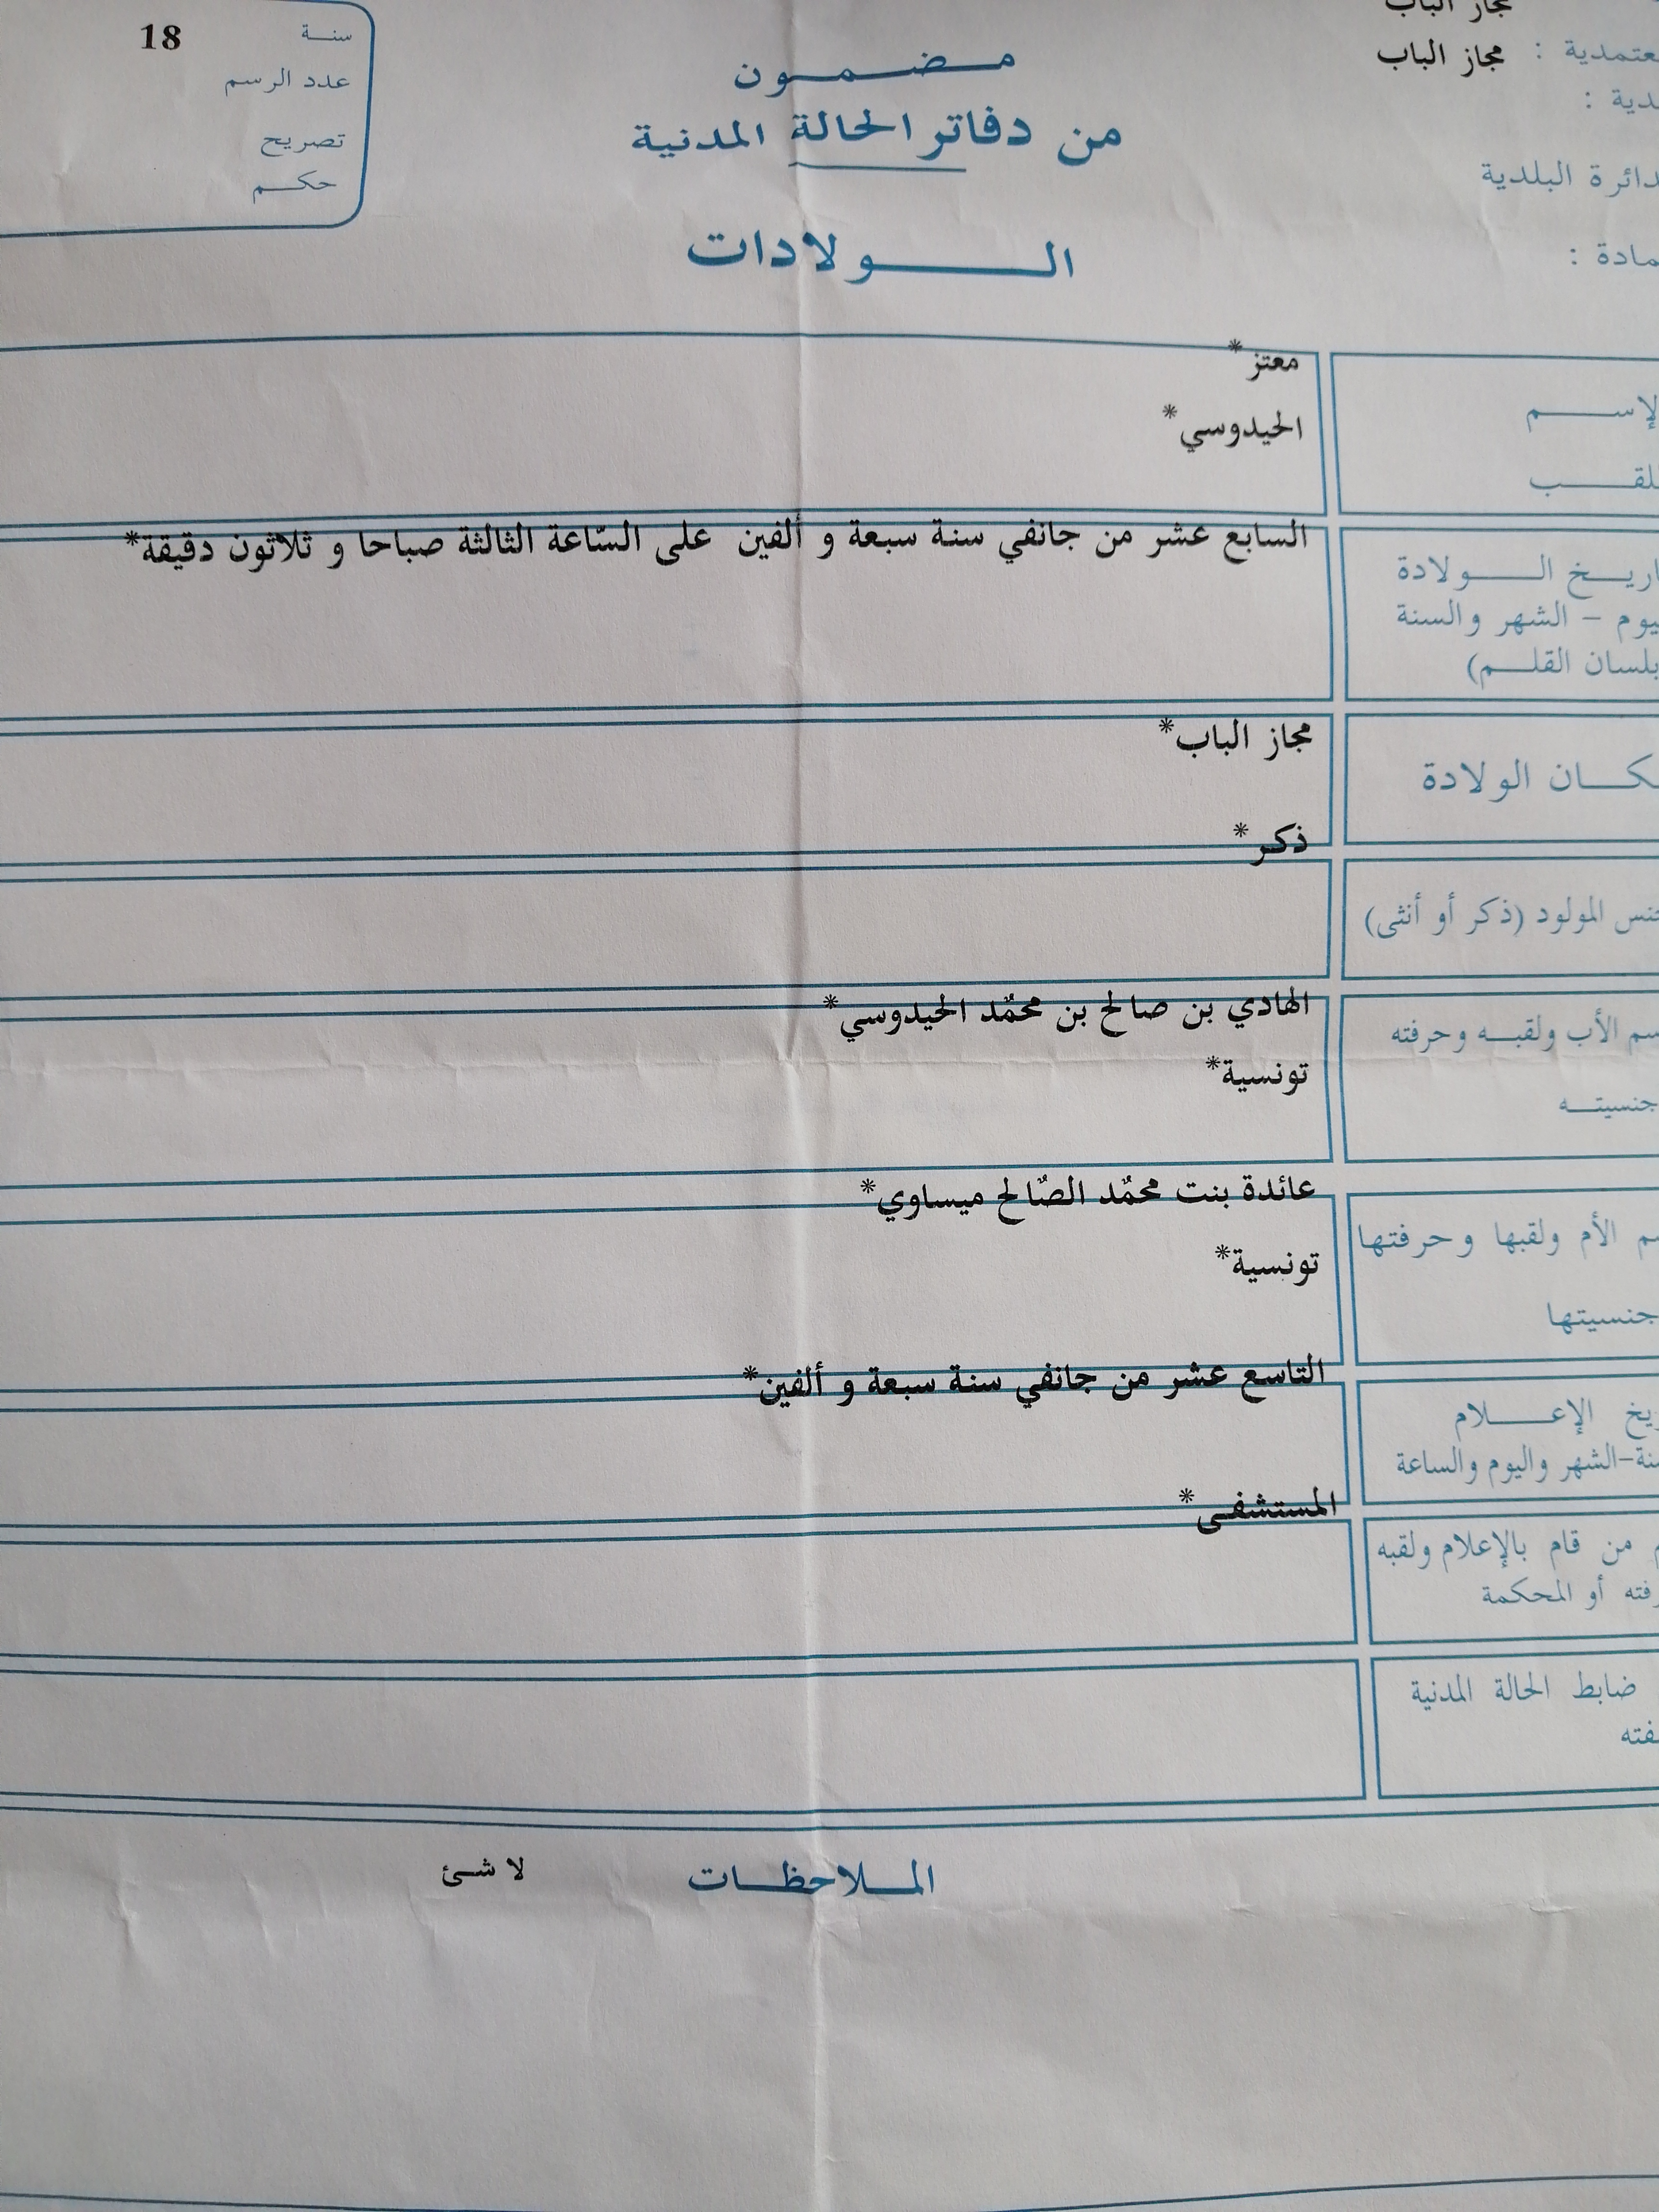 مجاز الباب
معتمدية : مجاز الباب
سنة 18
عدد الرسم
تصريح
حكم
مضمون
من دفاتر الحالة المدنية
الولادات
دائرة البلدية
معتز*
الإسم
الحيدوسي*
اللقب
السابع عشر من جانفي سنة سبعة و ألفين على السّاعة الثالثة صباحا و ثلاثون دقيقة*
تاريخ الولادة
اليوم - الشهر والسنة
بلسان القلم)
مجاز الباب*
مكان الولادة
ذكر*
جنس المولود (ذكر أو أنثى)
الهادي بن صالح بن محمّد الحيدوسي*
إسم الأب ولقبه وحرفته
تونسية*
جنسيته
عائدة بنت محمّد الصّالح ميساوي*
إسم الأم ولقبها وحرفتها
تونسية*
جنسيتها
التاسع عشر من جانفي سنة سبعة و ألفين*
تاريخ الإعلام
السنة-الشهر واليوم والساعة
المستشفى*
من قام بالإعلام ولقبه
أو المحكمة
ضابط الحالة المدنية
الملاحظات لا شئ